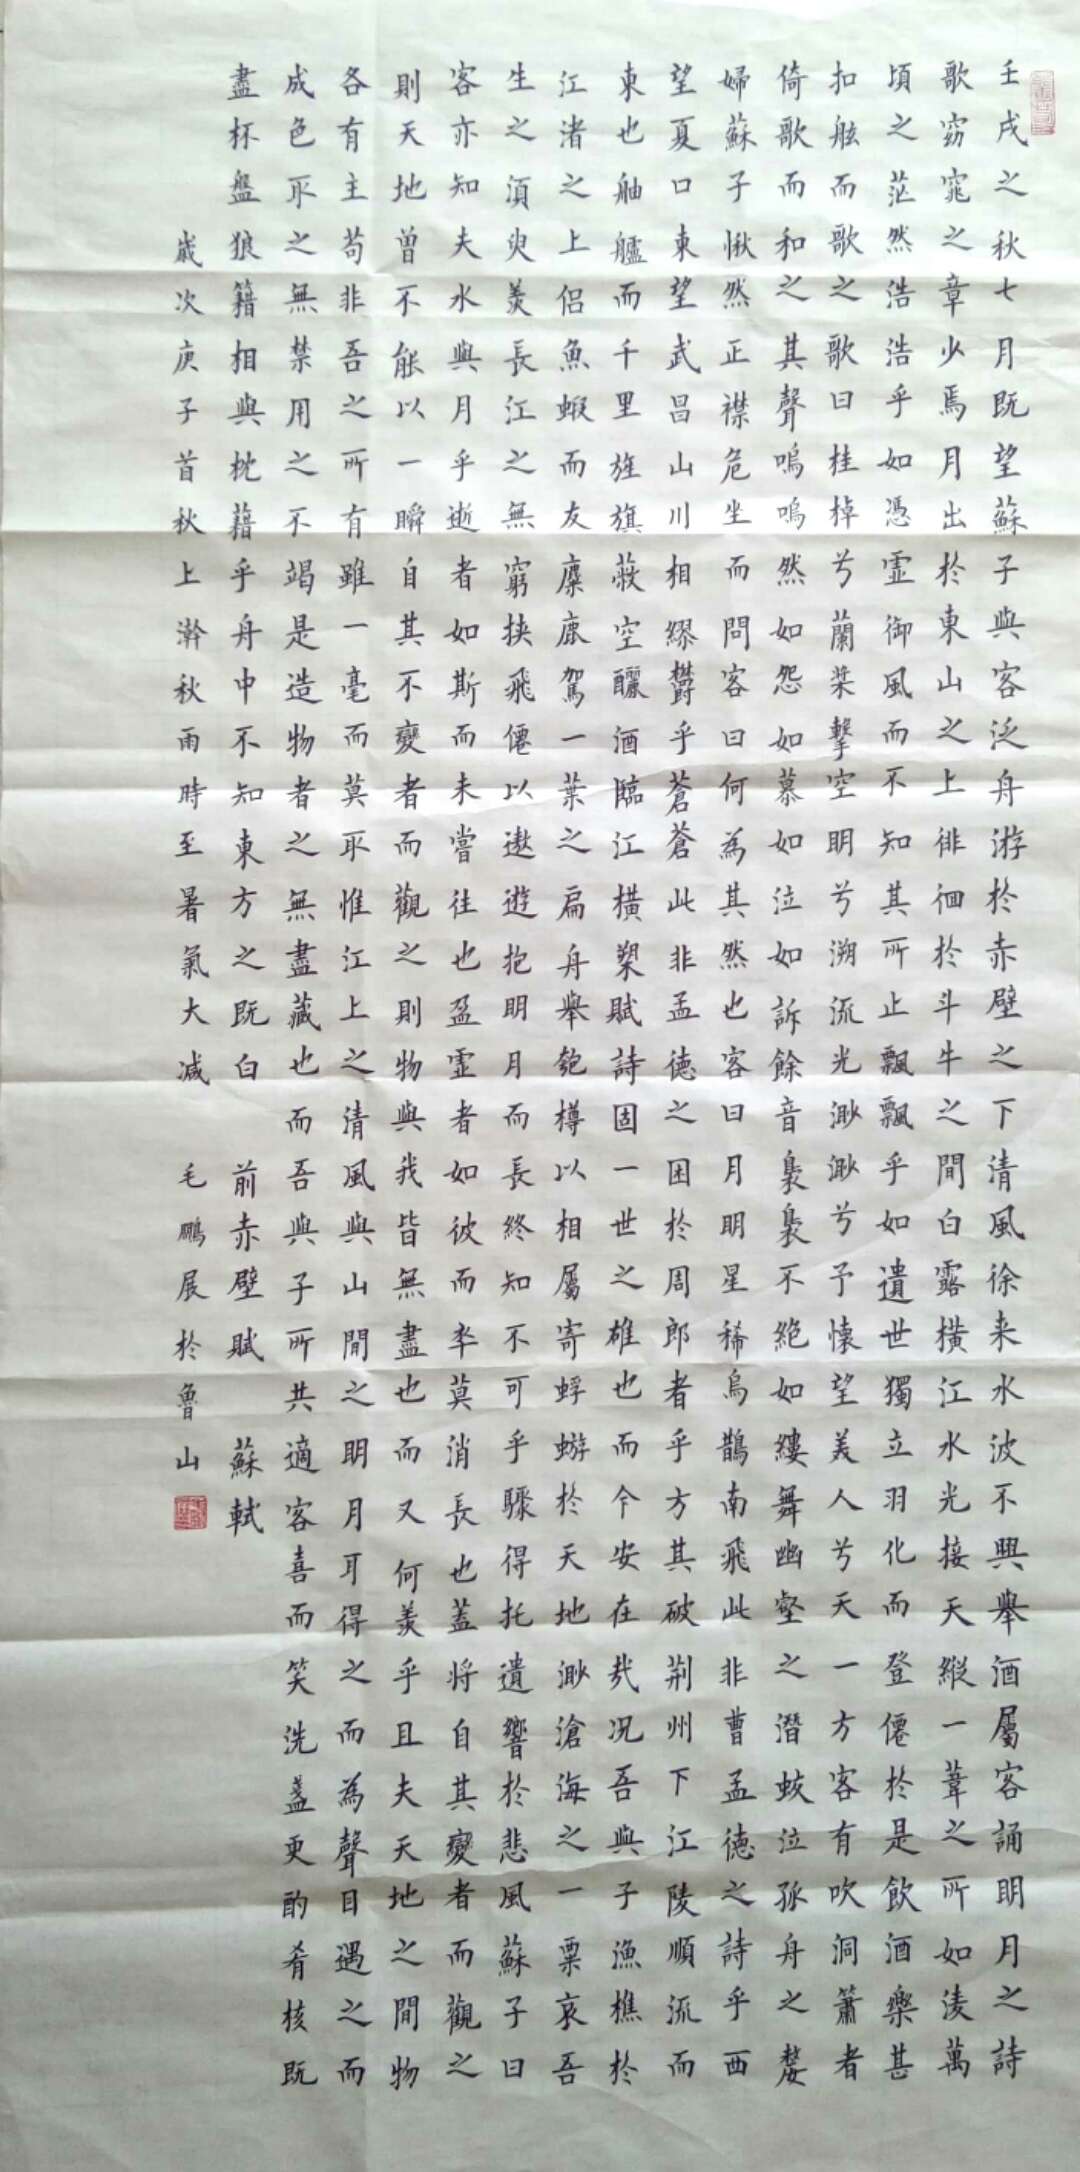 壬戌之秋七月既望蘇子與客泛舟游於赤壁之下清風徐来水波不興舉酒屬客誦明月之詩
歌窈窕之章少焉月出於東山之上徘徊於斗牛之間白露橫江水光接天縱一葦之所如淩萬
頃之茫然浩浩乎如憑虛御風而不知其所止飄飄乎如遺世獨立羽化而登僊於是飲酒樂甚
扣舷而歌之歌曰桂棹兮蘭槳擊空明兮溯流光渺渺兮予懐望美人兮天一方客有吹洞簫者
倚歌而和之其聲嗚嗚然如怨如慕如泣如訴餘音裊裊不絶如縷舞幽壑之潛蛟泣孤舟之嫠
婦蘇子愀然正襟危坐而問客曰何為其然也客曰月明星稀烏鵲南飛此非曹孟德之詩乎西
望夏口東望武昌山川相繆鬱乎蒼蒼此非孟德之困於周郎者乎方其破荆州下江陵順流而
東也舳艫而千里旌旗蔽空釃酒臨江橫槊賦詩固一世之雄也而今安在哉况吾與子漁樵於
江渚之上侣魚蝦而友麋鹿駕一葉之扁舟舉匏樽以相屬寄蜉蝣於天地渺滄海之一粟哀吾
生之須臾羨長江之無窮挟飛僊以遨遊抱明月而長終知不可乎驟得托遺響於悲風蘇子曰
客亦知夫水與月乎逝者如斯而未嘗往也盈虛者如彼而卒莫消長也蓋将自其變者而觀之
則天地曾不能以一瞬自其不變者而觀之則物與我皆無盡也而又何羨乎且夫天地之間物
各有主苟非吾之所有雖一毫而莫取惟江上之清風與山間之明月耳得之而為聲目遇之而
成色取之無禁用之不竭是造物者之無盡藏也而吾與子所共適客喜而笑洗盞更酌肴核既
盡杯盤狼籍相與枕藉乎舟中不知東方之既白 前赤壁賦 蘇軾
歲次庚子首秋上澣秋雨時至暑氣大減 毛鵬展於魯山